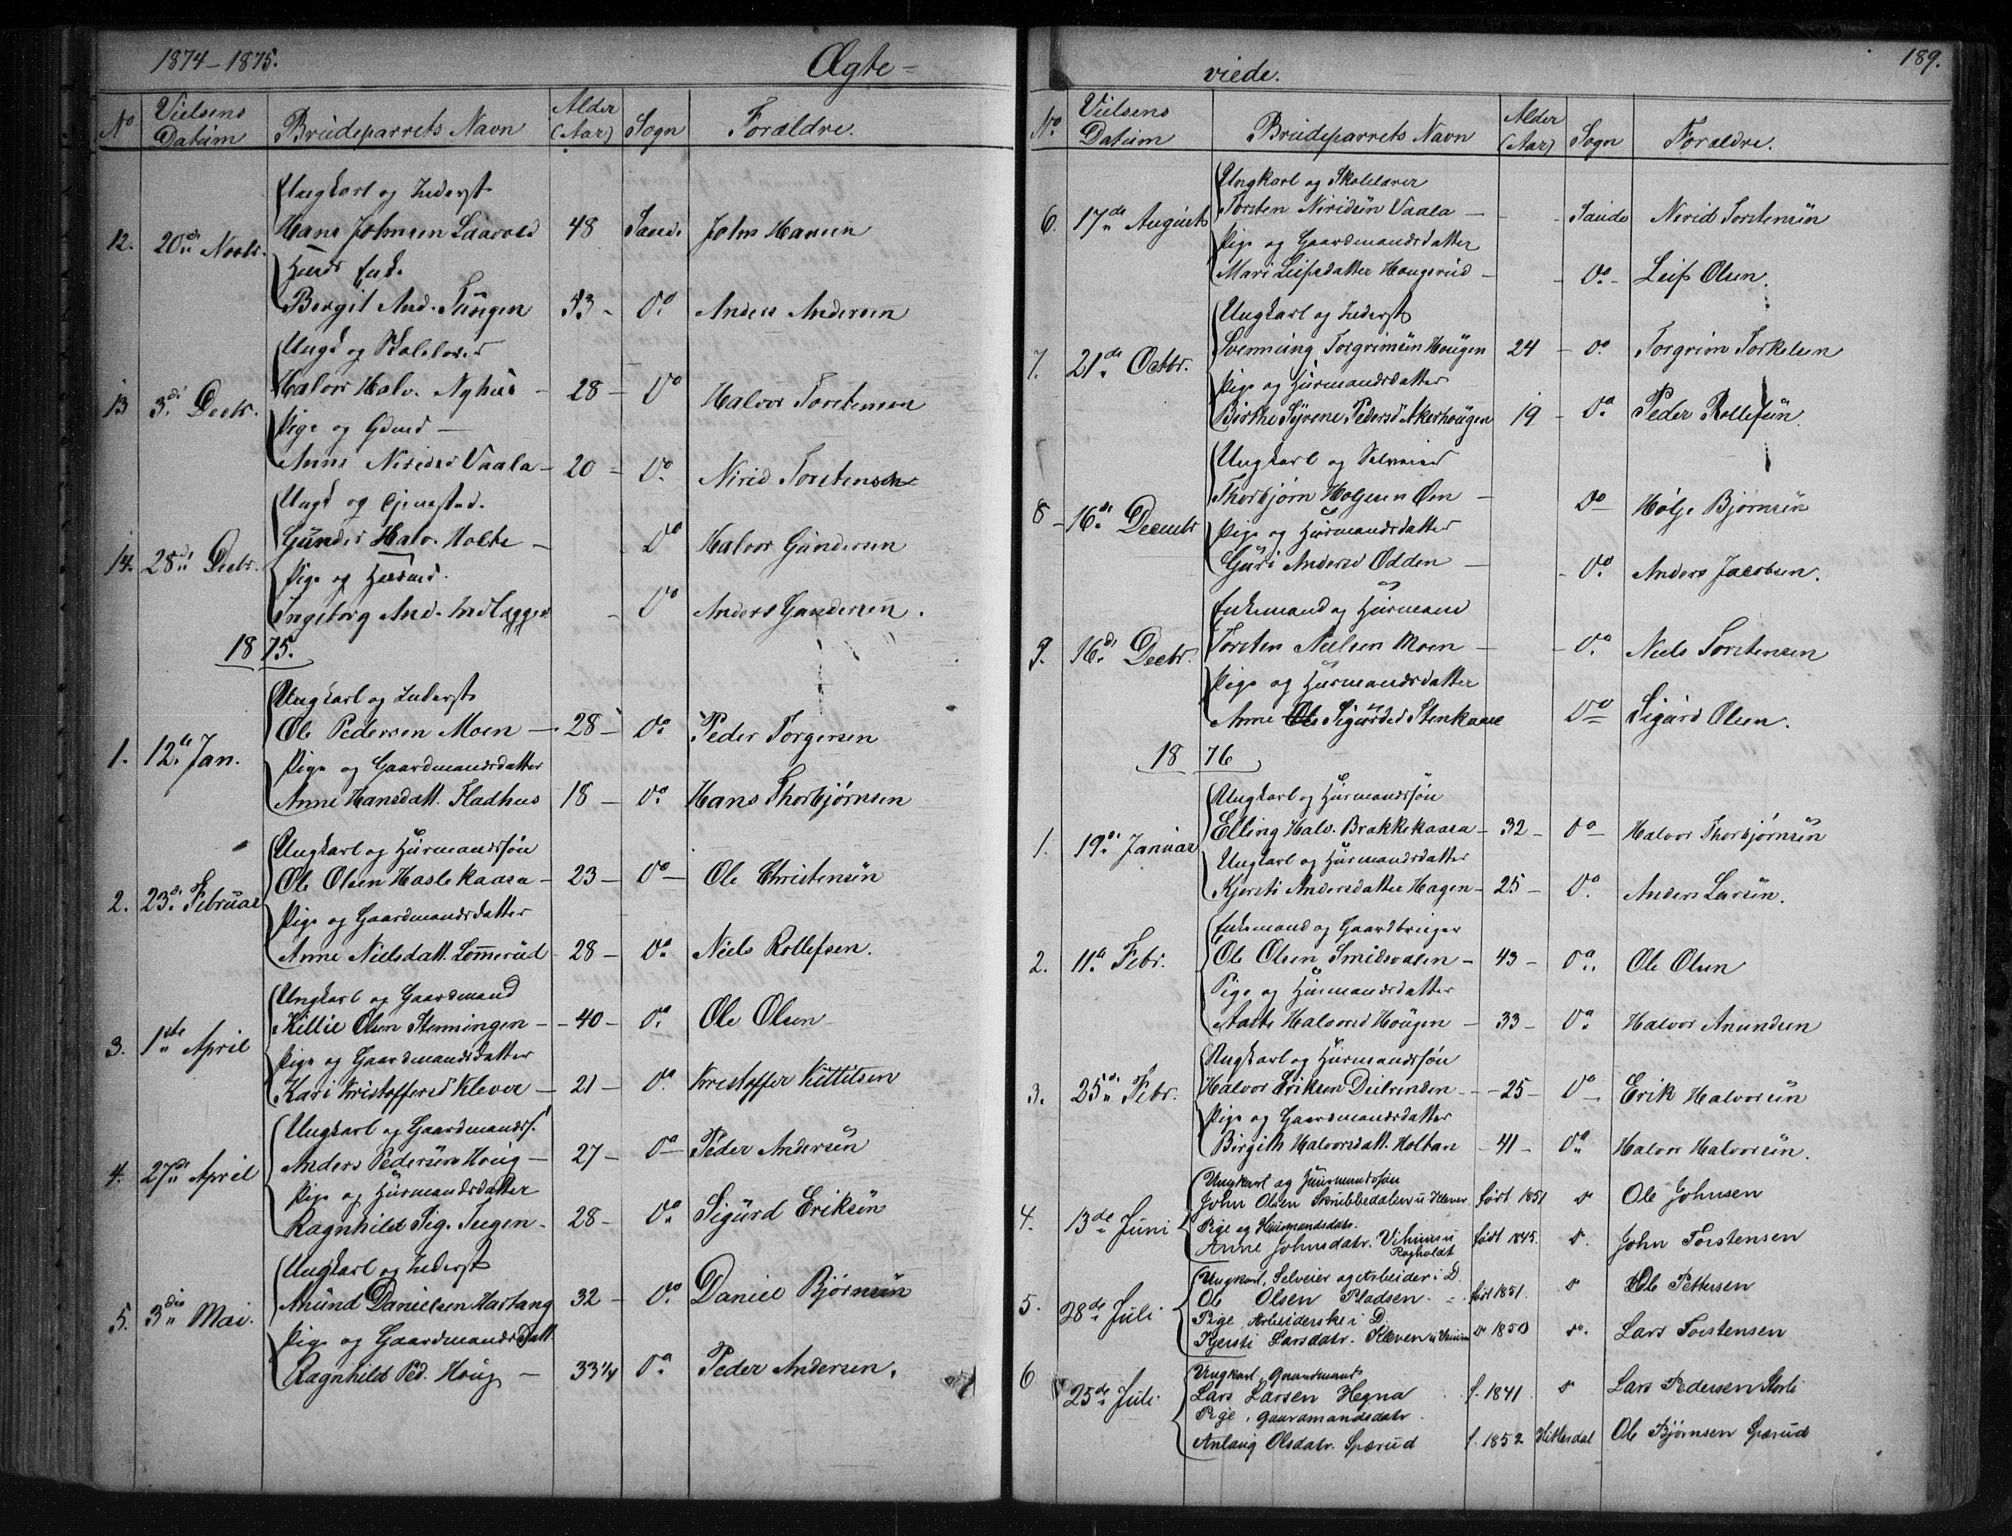 1874–1875.
Ægte–
No
Vielsens Datum
Brudeparrets Navn
Alder (Aar)
Sogn
Forældre.
Ungkarl og Inderst
12. 20de Novbr. Hans Johnsen 48 Saude John Hansen
Huusd Enke
Bergit And. Tungen 53 – Do Anders Andersen
Ungk og Skolelærer
13 3die Decbr. Halvor Halv. Nyhus – 28 – Do Halvor Torstensen
Pige og Gdmd –
Anne Nirisd Vaala – 20 – Do Nirid Torstensen
Ungk og Tjenested.
14. 28de Decbr. Gunder Halv. Holte – Do Halvor Gundersen
Pige og Huusmd.
Ingeborg And. – Do Anders Gundersen.
1875.
Ungkarl og Inderst
1. 12te Jan. Ole Pedersen Moen – 28 – Do Peder Torgersen
Pige og Gaardmandsdatter
Anne Hansdatt. Fladhus 18 – Do Hans Thorbjørnsen
Ungkarl og Husmandssøn
2. 23de Februar Ole Olsen Haslekaasa – 23 – Do – Ole Christensen
Pige og Gaardmandsdatter
Anne Nielsdatt. Lommerud – 28 – Do Niels Rollefsen.
Ungkarl og Gaardmand
3. 1ste April Kittil Olsen Stenningen – 40 – Do Ole Olsen
Pige og Gaardmandsdatter
Kari Kristoffersd Klever – 21 – Do Kristoffer Kittilsen
Ungkarl og Gaardmandss.
4. 27de April Anders Pedersen Houg – 27 – Do Peder Andersen
Pige og Husmandsdatter
Ragnhild Sig. Teigen – 28 – Do Sigurd Eriksen
Ungkarl og Inderst
5. 3die Mai. Anund Danielsen Hartang 32 – Do Daniel Bjørnsen
Pige og Gaardmandsdatt.
Ragnhild Ped. Houg – 33 1/4 Do Peder Andersen.
189.
viede.
No.
Vielsens Datum
Brudeparrets Navn
Alder (Aar)
Sogn
Forældre.
Ungkarl og Skolelærer
6. 17de August Torsten Niridsen Vaala – – Saude Nirid Torstensen
Pige og Gaardmandsdatter
Mari Leifsdatter Hougerud – – Do – Leif Olsen.
Ungkarl og Inderst
7. 21de Octbr. Svennung Torgrimsen Hougen 24 – Do Torgrim Torkelsen
Pige og Husmandsdatter
Birthe Syrene Pedersd Akerhougen 19 – Do Peder Rollefsen.
Ungkarl og Selveier
8 – 16de Decmbr Thorbjørn Holjesen Øen – Do Holje Bjørnsen
Pige og Husmandsdatter
Guri Andersd Odden – – Do Anders Jacobsen.
Enkemand og Husmand
9. 16de Decbr. Torsten Nielsen Moen – – Do Niels Torstensen
Pige og Husmandsdatter
Anne Ole Sigurdsd Stenkaase Do Sigurd Olsen.
1876
Ungkarl og Husmandssøn
1. 19de Januar Elling Halv. Brakkekaasa – 32 – Do – Halvor Thorbjørnsen
Ungkarl og Husmandsdatter
Kjersti Andersdatter Hagen – 25 – Do. Anders Larsen.
Enkemand og Gaardbruger
2. 11te Febr. Ole Olsen Smidsvalen – 43 – Do Ole Olsen
Pige og Husmandsdatter
Aaste Halvorsd Hougen – 33 – Do Halvor Anundsen
Ungkarl og Husmandssøn
3. 25de Febr. Halvor Eriksen – 25 – Do – Erik Halvorsen
Pige og Gaardmandsdatter
Birgith Halvorsdatt. Holtan – 41 – Do Halvor Halvorsen.
Ungkarl og Huusmandssøn
4. 13de Juni John Olsen Skrubbedalen u Klever født 1851 Do Ole Johnsen
Pige og Huusmandsdatr.
Anne Johnsdatr. født 1845. Do. John Torstensen
Ungkarl, Selveier og Arbeider i D.
5. 28de Juli Ole Olsen Pladsen født 1851. Do Ole Pettersen
Pige, Arbeiderske i D.
Kjersti Larsdatr. Kleven Do 1850 Do. Lars Torstensen
Ungkarl, Gaardmand
6 25de Juli. Lars Larsen Hegna f. 1841 Do Lars Pedersen
Pige, Gaardmandsdatr.
Anlaug Olsdatr. Spærud f. 1852 Hitterdal Ole Bjørnsen Spærud